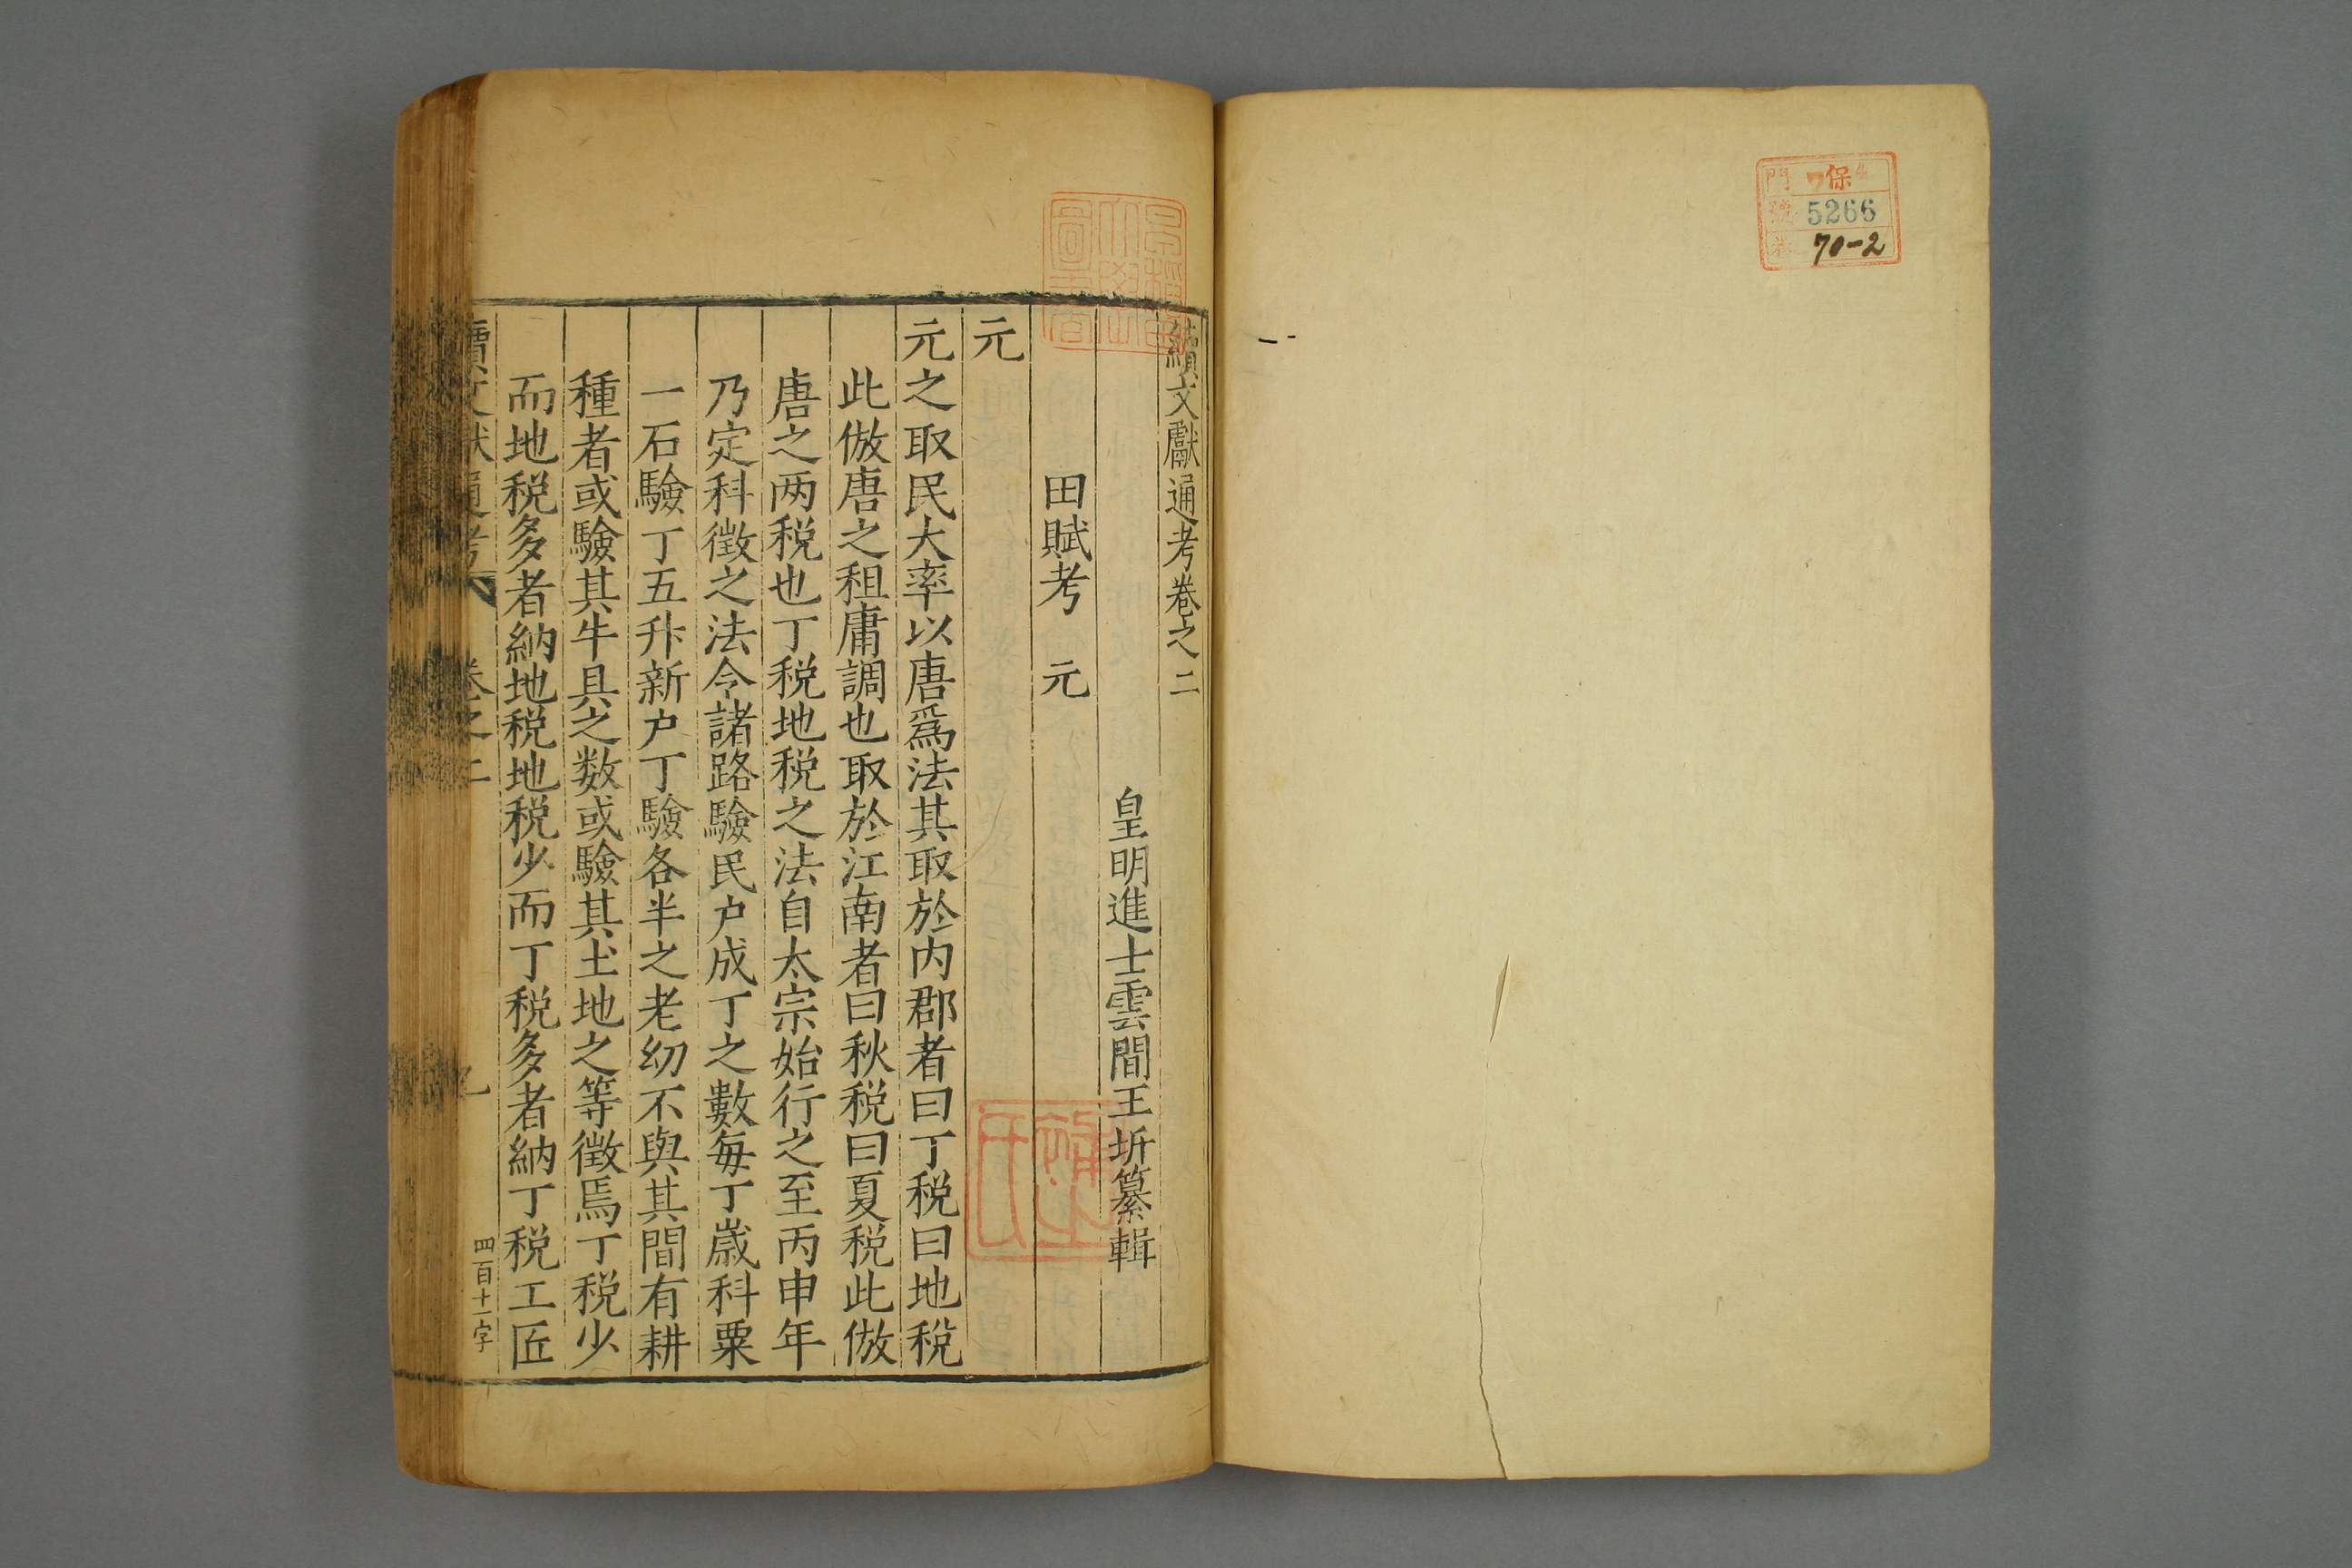 保
門
號 5266
70-2
續文獻通考卷之二
皇明進士雲間王圻纂輯
田賦考 元
元
元之取民大率以唐爲法其取於内郡者曰丁税曰地税
此倣唐之租庸調也取於江南者曰秋税曰夏税此倣
唐之两税也丁税地税之法自太宗始行之至丙申年
乃定科徵之法令諸路驗民户成丁之數每丁歲科粟
一石驗丁五升新户丁驗各半之老幼不與其間有耕
種者或驗其牛具之数或驗其土地之等徵焉丁税少
而地税多者納地税地税少而丁税多者納丁税工匠
續文獻通考 卷之二
四百十一字